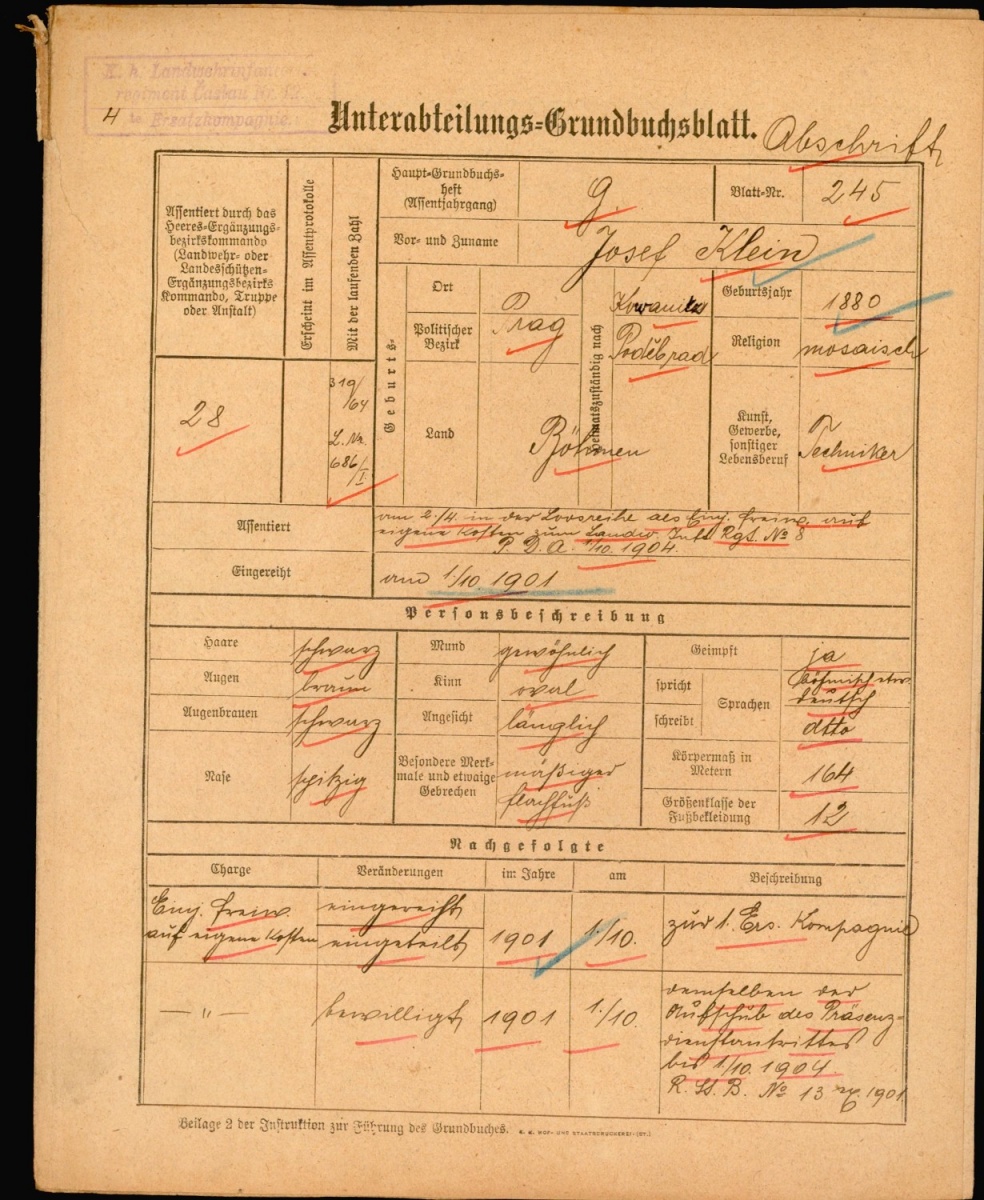 K. k. Landwehrinfanterie-
regiment Časlau Nr. 12
Ersatzkompagnie.
4
Unterabteilungs-Grundbuchsblatt.
Abschrift
Assentiert durch das
Heeres-Ergänzungs-
bezirkskommando
(Landwehr- oder
Landesschützen-
Ergänzungsbezirks
Kommando, Truppe
oder Anstalt)
Erscheint im Assentprotokolle
Mit der laufenden Zahl
28
319/64
L. Nr.
686/I
Haupt-Grundbuchs-
heft
(Assentjahrgang)
g.
Blatt-Nr.
245
Vor- und Zuname
Josef Klein
Geburts-
Ort
Prag
Politischer
Bezirk
Land
Böhmen
Heimatszuständig nach
Kowanitz
Poděbrad
Geburtsjahr
1880
Religion
mosaisch
Kunst,
Gewerbe,
sonstiger
Lebensberuf
Techniker
Assentiert
am 2./4. in der Losreihe als Einj. freiw. auf
eigene Kosten zum Landw. Inft. Rgt. No 8
P. D. A. 1/10. 1904.
Eingereiht
am 1/10 1901
Personsbeschreibung
Haare
schwarz
Mund
gewöhnlich
Geimpft
ja
Augen
braun
Kinn
oval
spricht
schreibt
Sprachen
böhmisch etw.
deutsch
dtto
Augenbrauen
schwarz
Angesicht
länglich
Nase
spitzig
Besondere Merk-
male und etwaige
Gebrechen
mäßiger
flachfuß
Körpermaß in
Metern
164
Größenklasse der
Fußbekleidung
12
Nachgefolgte
Charge
Veränderungen
im Jahre
am
Beschreibung
Einj. freiw.
auf eigene Kosten
eingereiht
eingeteilt
1901
1./10.
zur 1. Ers. Kompagnie
— " —
bewilligt
1901
1./10.
demselben der
Aufschub des Präsenz-
dienstantrittes
bis 1/10. 1904
R. No 13 1901
Beilage 2 der Instruktion zur Führung des Grundbuches.
K. K. HOF- UND STAATSDRUCKEREI